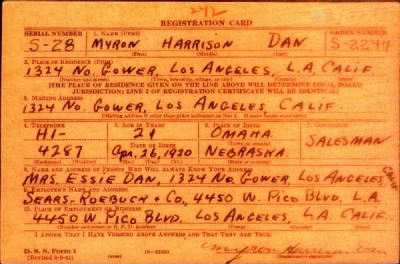 242
REGISTRATION CARD
SERIAL NUMBER 1. NAME (Print) ORDER NUMBER
S-28 MYRON HARRISON DAN S-2247
(First) (Middle) (Last)
2. PLACE OF RESIDENCE (Print)
1324 No. GOWER, LOS ANGELES, L.A. CALIF.
(Number and street) (Town, township, village, or city) (County) (State)
[THE PLACE OF RESIDENCE GIVEN ON THE LINE ABOVE WILL DETERMINE LOCAL BOARD
JURISDICTION; LINE 2 OF REGISTRATION CERTIFICATE WILL BE IDENTICAL]
3. MAILING ADDRESS
1324 No. GOWER, LOS ANGELES, CALIF
[Mailing address if other than place indicated on line 2. If same insert word same]
4. TELEPHONE 5. AGE IN YEARS 6. PLACE OF BIRTH
HI- 21 OMAHA SALESMAN
DATE OF BIRTH
4287 Apr. 26, 1920 NEBRASKA
(Exchange) (Number) (Mo.) (Day) (Yr.) (State or country)
8. NAME AND ADDRESS OF PERSON WHO WILL ALWAYS KNOW YOUR ADDRESS
MRS. ESSIE DAN, 1324 No. GOWER, LOS ANGELES, CALIF
EMPLOYER'S NAME AND ADDRESS
SEARS-ROEBUCK + Co., 4450 W. PICO BLVD., L.A.
10. PLACE OF EMPLOYMENT OR BUSINESS
4450 W. PICO BLVD. LOS ANGELES, L.A. CALIF.
(Number and street or R. F. D. number) (Town) (County) (State)
I AFFIRM THAT I HAVE VERIFIED ABOVE ANSWERS AND THAT THEY ARE TRUE.
D. S. S. Form 1
Myron Harrison Dan